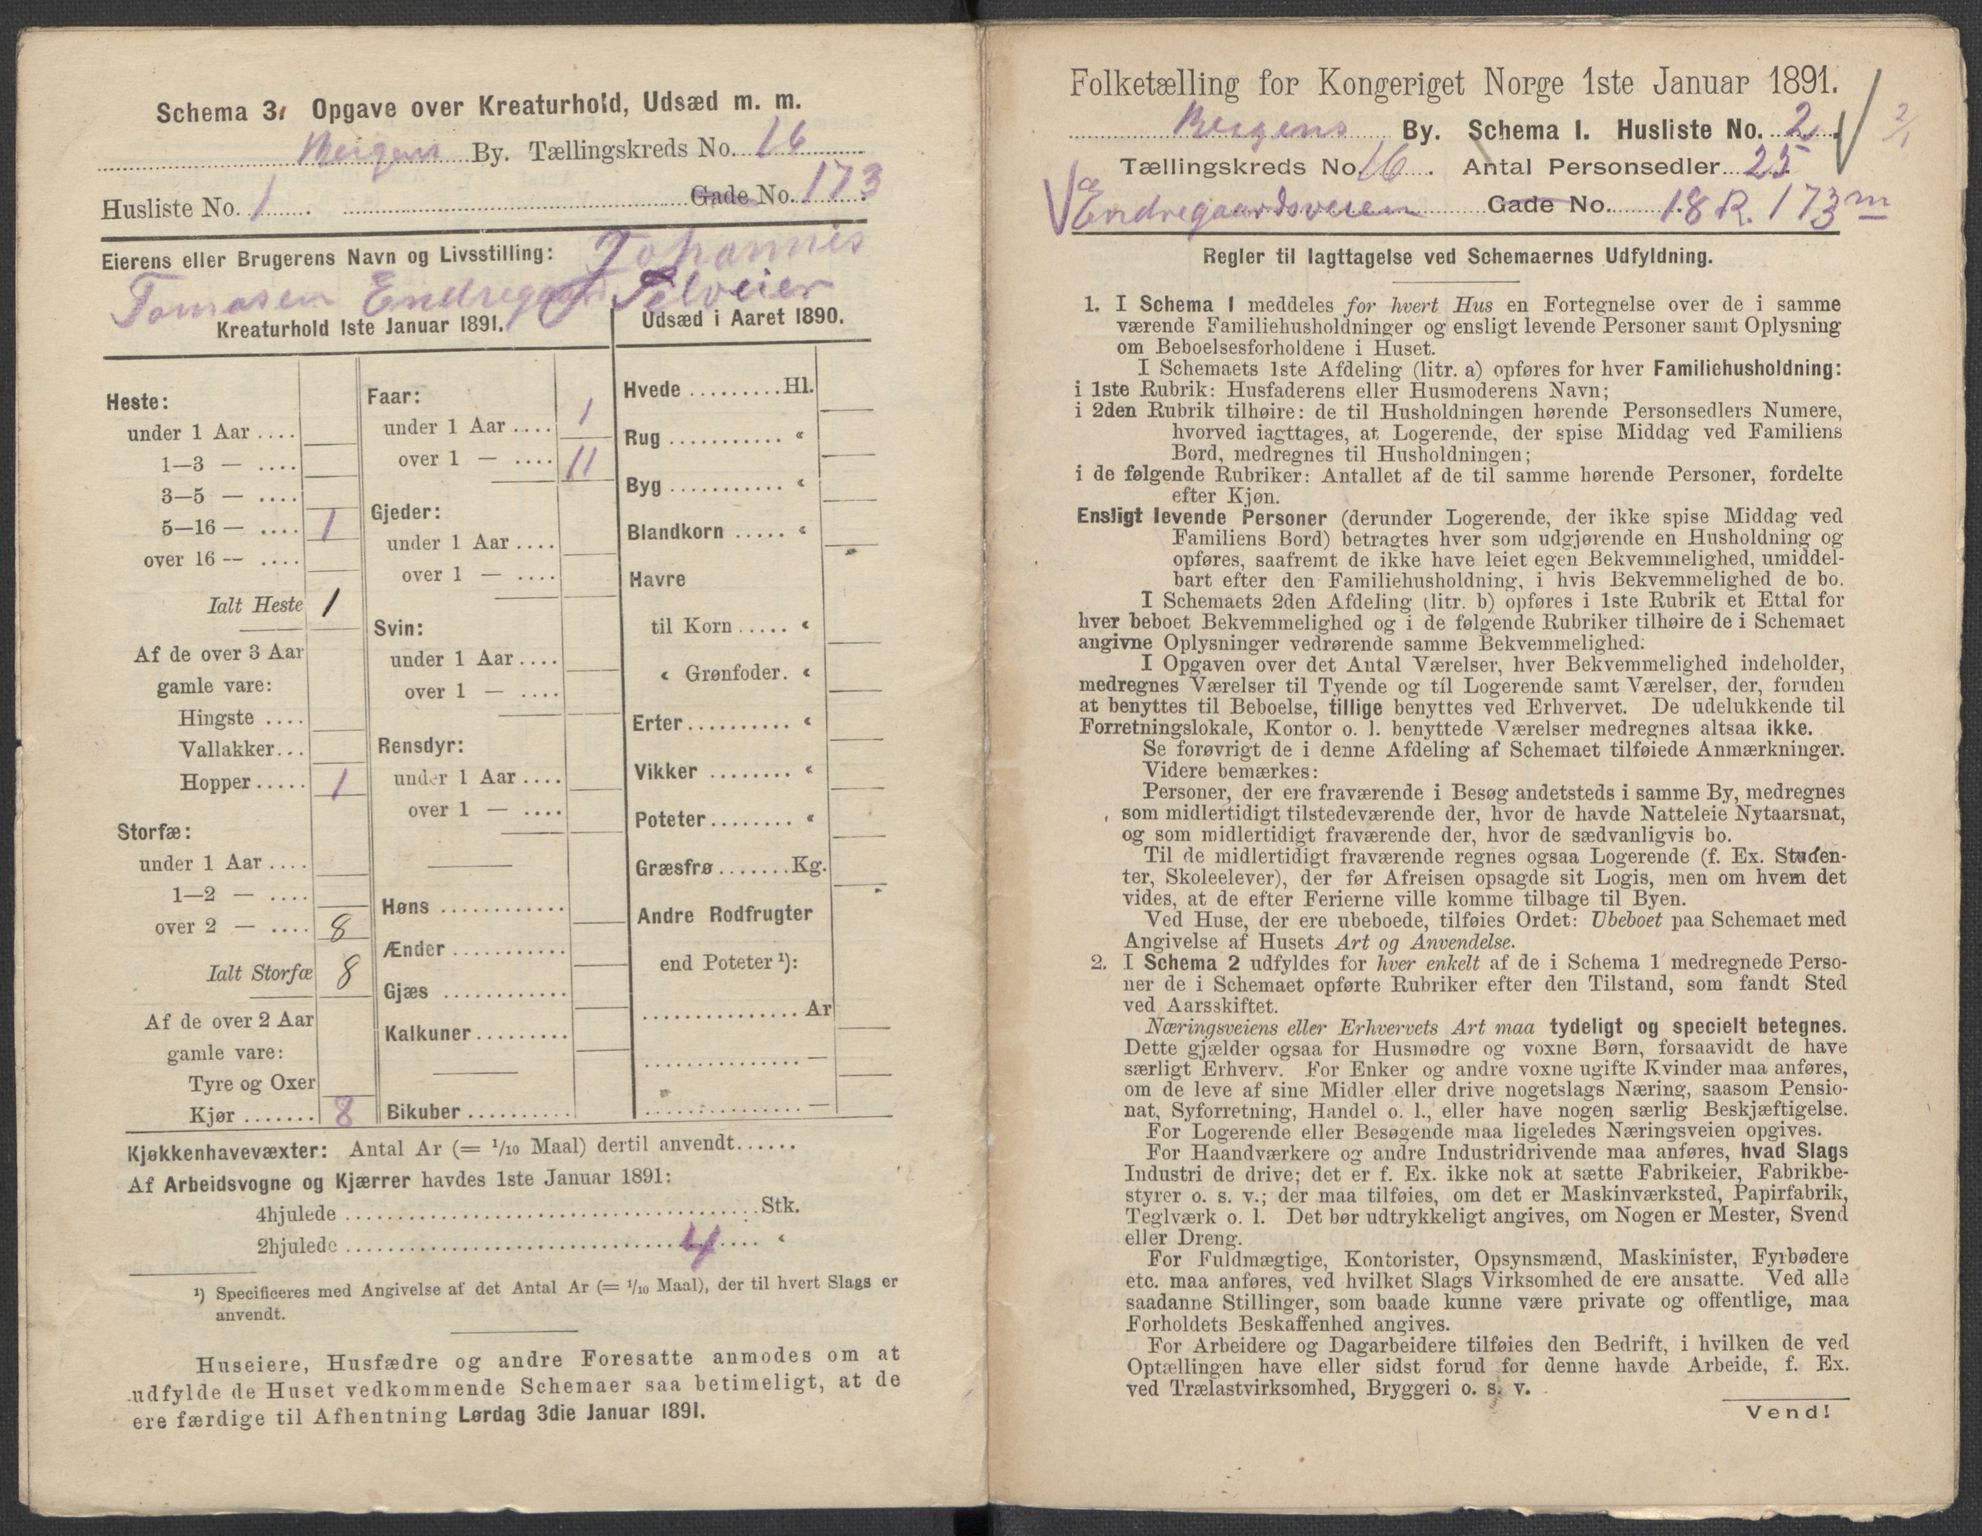 Schema 3. Opgave over Kreaturhold, Udsæd m. m.
Bergens By. Tællingskreds No. 16
Husliste No. 1 Gade No. 173
Eierens eller Brugerens Navn og Livsstilling: Johannis
Tomasen Endregaard Selveier
Kreaturhold 1ste Januar 1891.
Heste:
under 1 Aar ....
1—3 — ....
3—5 — ....
5—16 — .... 1
over 16 — ....
Ialt Heste 1
Af de over 3 Aar
gamle vare:
Hingste ....
Vallakker...
Hopper..... 1
Storfæ:
under 1 Aar ....
1—2 — ....
over 2 — .... 8
Ialt Storfæ 8
Af de over 2 Aar
gamle vare:
Tyre og Oxer
Kjør ....... 8
Faar:
under 1 Aar .... 1
over 1 — .... 11
Gjeder:
under 1 Aar ....
over 1 — ....
Svin:
under 1 Aar ....
over 1 — ....
Rensdyr:
under 1 Aar ....
over 1 — ....
Høns ............
Ænder ...........
Gjæs ............
Kalkuner .........
Bikuber ..........
Udsæd i Aaret 1890.
Hvede ......... Hl.
Rug ........... «
Byg ........... «
Blandkorn ..... «
Havre
til Korn ..... «
« Grønfoder. «
Erter .......... «
Vikker ........ «
Poteter........ «
Græsfrø ....... Kg.
Andre Rodfrugter
end Poteter ¹):
............... Ar
............... —
............... —
Kjøkkenhavevæxter: Antal Ar (= 1/10 Maal) dertil anvendt......
Af Arbeidsvogne og Kjærrer havdes 1ste Januar 1891:
4hjulede ........................................ Stk.
2hjulede ................................ 4 .... «
¹) Specificeres med Angivelse af det Antal Ar (= 1/10 Maal), der til hvert Slags er
anvendt.
Huseiere, Husfædre og andre Foresatte anmodes om at
udfylde de Huset vedkommende Schemaer saa betimeligt, at de
ere færdige til Afhentning Lørdag 3die Januar 1891.
Folketælling for Kongeriget Norge 1ste Januar 1891.
Bergens By. Schema 1. Husliste No. 2 2/1
Tællingskreds No 16. Antal Personsedler 25
Endregaardsveien Gade No. 18 R. 173 m
Regler til Iagttagelse ved Schemaernes Udfyldning.
1. I Schema 1 meddeles for hvert Hus en Fortegnelse over de i samme
værende Familiehusholdninger og ensligt levende Personer samt Oplysning
om Beboelsesforholdene i Huset.
I Schemaets 1ste Afdeling (litr. a) opføres for hver Familiehusholdning:
i 1ste Rubrik: Husfaderens eller Husmoderens Navn;
i 2den Rubrik tilhøire: de til Husholdningen hørende Personsedlers Numere,
hvorved iagttages, at Logerende, der spise Middag ved Familiens
Bord, medregnes til Husholdningen;
i de følgende Rubriker: Antallet af de til samme hørende Personer, fordelte
efter Kjøn.
Ensligt levende Personer (derunder Logerende, der ikke spise Middag ved
Familiens Bord) betragtes hver som udgjørende en Husholdning og
opføres, saafremt de ikke have leiet egen Bekvemmelighed, umiddel-
bart efter den Familiehusholdning, i hvis Bekvemmelighed de bo.
I Schemaets 2den Afdeling (litr. b) opføres i 1ste Rubrik et Ettal for
hver beboet Bekvemmelighed og i de følgende Rubriker tilhøire de i Schemaet
angivne Oplysninger vedrørende samme Bekvemmelighed.
I Opgaven over det Antal Værelser, hver Bekvemmelighed indeholder,
medregnes Værelser til Tyende og til Logerende samt Værelser, der, foruden
at benyttes til Beboelse, tillige benyttes ved Erhvervet. De udelukkende til
Forretningslokale, Kontor o. l. benyttede Værelser medregnes altsaa ikke.
Se forøvrigt de i denne Afdeling af Schemaet tilføiede Anmærkninger.
Videre bemærkes:
Personer, der ere fraværende i Besøg andetsteds i samme By, medregnes
som midlertidigt tilstedeværende der, hvor de havde Natteleie Nytaarsnat,
og som midlertidigt fraværende der, hvor de sædvanligvis bo.
Til de midlertidigt fraværende regnes ogsaa Logerende (f. Ex. Studen-
ter, Skoleelever), der før Afreisen opsagde sit Logis, men om hvem det
vides, at de efter Ferierne ville komme tilbage til Byen.
Ved Huse, der ere ubeboede, tilføies Ordet: Ubeboet paa Schemaet med
Angivelse af Husets Art og Anvendelse.
2. I Schema 2 udfyldes for hver enkelt af de i Schema 1 medregnede Perso-
ner de i Schemaet opførte Rubriker efter den Tilstand, som fandt Sted
ved Aarsskiftet.
Næringsveiens eller Erhvervets Art maa tydeligt og specielt betegnes.
Dette gjælder ogsaa for Husmødre og voxne Børn, forsaavidt de have
særligt Erhverv. For Enker og andre voxne ugifte Kvinder maa anføres,
om de leve af sine Midler eller drive nogetslags Næring, saasom Pensio-
nat, Syforretning, Handel o. l., eller have nogen særlig Beskjæftigelse.
For Logerende eller Besøgende maa ligeledes Næringsveien opgives.
For Haandværkere og andre Industridrivende maa anføres, hvad Slags
Industri de drive; det er f. Ex. ikke nok at sætte Fabrikeier, Fabrikbe-
styrer o. s. v.; der maa tilføies, om det er Maskinværksted, Papirfabrik,
Teglværk o. l. Det bør udtrykkeligt angives, om Nogen er Mester, Svend
eller Dreng.
For Fuldmægtige, Kontorister, Opsynsmænd, Maskinister, Fyrbødere
etc. maa anføres, ved hvilket Slags Virksomhed de ere ansatte. Ved alle
saadanne Stillinger, som baade kunne være private og offentlige, maa
Forholdets Beskaffenhed angives.
For Arbeidere og Dagarbeidere tilføies den Bedrift, i hvilken de ved
Optællingen have eller sidst forud for denne havde Arbeide, f. Ex.
ved Trælastvirksomhed, Bryggeri o. s. v.
Vend!